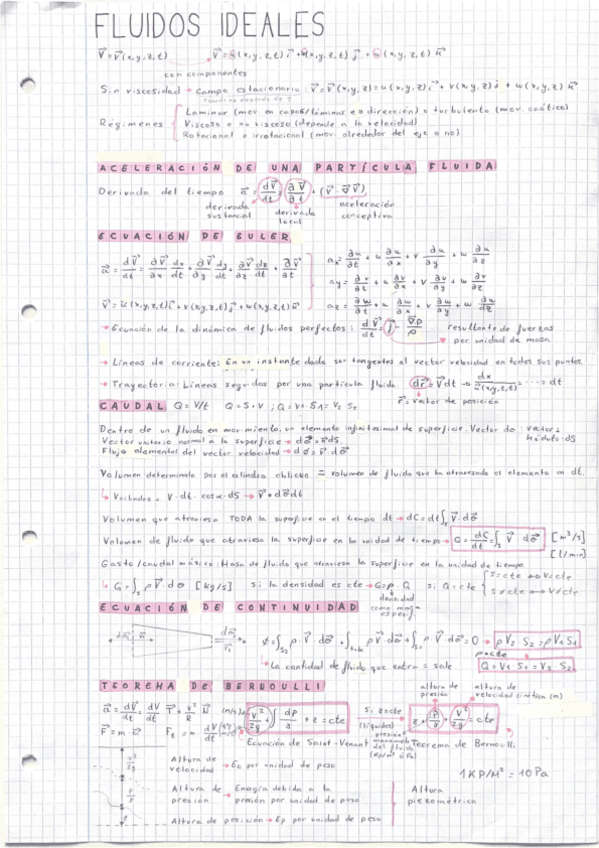 FLUIDOS IDEALES
V⃗ = V⃗ (x,y,z,t) V⃗ = u(x,y,z,t) i⃗ + v(x,y,z,t) j⃗ + w(x,y,z,t) k⃗
con componentes
Sin viscosidad → Campo estacionario: V⃗ = V⃗ (x,y,z) = u(x,y,z) i⃗ + v(x,y,z) j⃗ + w(x,y,z) k⃗
Regímenes
Laminar (mov en capas/láminas = dirección) o turbulento (mov. caótico)
Viscoso o no viscoso (depende a la velocidad)
Rotacional o irrotacional (mov. alrededor del eje o no)
ACELERACIÓN DE UNA PARTÍCULA FLUIDA
Derivada del tiempo a⃗ = dV⃗/dt = ∂V⃗/∂t + (V⃗ · ∇V⃗)
derivada sustancial
derivada local
aceleración convectiva
ECUACIÓN DE EULER
a⃗ = dV⃗/dt = ∂V⃗/∂x dx/dt + ∂V⃗/∂y dy/dt + ∂V⃗/∂z dz/dt + ∂V⃗/∂t
ax = ∂u/∂t + u ∂u/∂x + v ∂u/∂y + w ∂u/∂z
ay = ∂v/∂t + u ∂v/∂x + v ∂v/∂y + w ∂v/∂z
az = ∂w/∂t + u ∂w/∂x + v ∂w/∂y + w ∂w/∂z
V⃗ = u(x,y,z,t) i⃗ + v(x,y,z,t) j⃗ + w(x,y,z,t) k⃗
→ Ecuación de la dinámica de fluidos perfectos: dV⃗/dt = f⃗ - ∇p/ρ
resultante de fuerzas
por unidad de masa
→ Líneas de corriente: En un instante dado son tangentes al vector velocidad en todos sus puntos.
→ Trayectoria: Líneas seguidas por una partícula fluida dr⃗ = V⃗ dt → dx/u(x,y,z,t) = ···· = dt
r⃗ = vector de posición
CAUDAL Q = V/t Q = S · V ; Q = V1 · S1 = V2 S2
Dentro de un fluido en movimiento, un elemento infinitesimal de superficie. Vector dσ
vector
Módulo: dS
Vector unitario normal a la superficie → dσ⃗ = n⃗ dS
Flujo elemental del vector velocidad → dϕ = V⃗ · dσ⃗
Volumen determinado por el cilindro oblicuo = volumen de fluido que ha atravesado el elemento en dt.
Vcilindro = V · dt · cos α · dS → V⃗ · dσ⃗ dt
Volumen que atraviesa TODA la superficie en el tiempo dt → dC = dt ∫s V⃗ · dσ⃗
Volumen de fluido que atraviesa la superficie en la unidad de tiempo → Q = dC/dt = ∫s V⃗ · dσ⃗ [m³/s]
[l/min]
Gasto/caudal másico: Masa de fluido que atraviesa la superficie en la unidad de tiempo
G = ∫s ρ V⃗ · dσ [kg/s] Si la densidad es cte → G = ρ · Q si Q = cte
S = cte ↔ V = cte
S ≠ cte ↔ V ≠ cte
densidad
ECUACIÓN DE CONTINUIDAD
ϕ = ∫S2 ρ · V⃗ · dσ⃗ + ∫tubo ρ V⃗ · dσ⃗ + ∫S1 ρ V⃗ · dσ⃗ = 0 → ρ V2 S2 = ρ V1 S1
ρ = cte
La cantidad de fluido que entra = sale
Q = V1 · S1 = V2 · S2
TEOREMA DE BERNOULLI
altura de presión
altura de velocidad cinética (m)
a⃗ = dV⃗/dt = dV/dt T⃗ + V²/R N⃗
V²/2g + ∫ dp/γ + z = cte
si γ = cte
(líquidos)
z + p/γ + V²/2g = cte
F⃗ = m · a⃗ Ft = m dV/dt
Ecuación de Saint-Venant
Teorema de Bernoulli
Altura de velocidad → Ec por unidad de peso
1 KP/M² = 10 Pa
Altura de presión → Energía debida a la presión por unidad de peso
Altura piezométrica
Altura de posición → Ep por unidad de peso